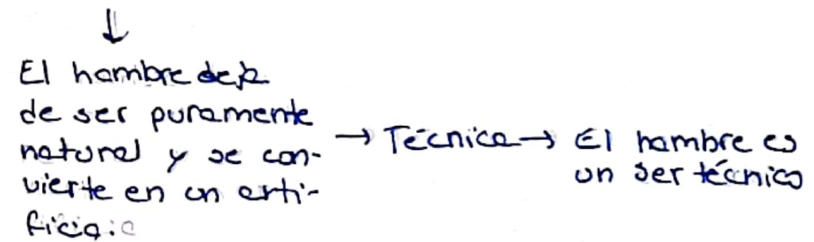 ↓
El hombre deja
de ser puramente
natural y se con-
vierte en un arti-
ficio
→ Técnica → El hombre es
un ser técnico